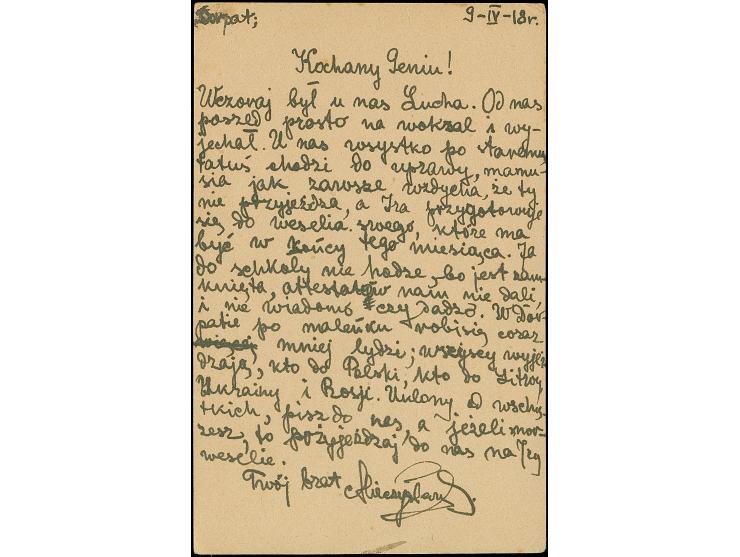 Dorpat; 9-IV-18r.
Kochany Geniu!
Wczoraj był u nas Lucha. Od nas
poszed prosto na wokzal i wy-
jechał. U nas wsystko po staremu
tatuś chodzi do uprawy, mamu-
sia jak zawsze wzdycha, że ty
nie przyjeżdża, a Ira przygotowuje
się do weselia swego, które ma
być w końcy tego miesiąca. Ja
do schkoly nie hodze, bo jest zam-
knięta, attestatów nam nie dali,
i nie wiadomo czy dadzo. W Dor-
patie po maleńku robisię coraz
mniej lydzi; wszyscy wyjeż-
dzają, kto do Polski, kto do Litwy,
Ukrainy i Rosji. Uulony od wschy-
tkich, pisz do nas, a jeżeli mor-
zesz, to pszyjeżdzaj do nas na Iry
weselie.
Twój brat Mieczysław